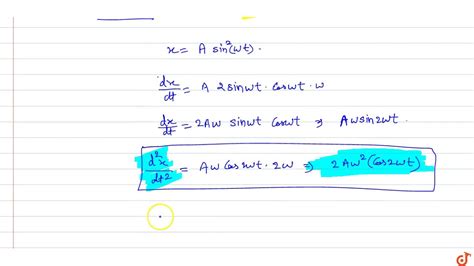 x = A sin²(ωt).
dx/dt = A 2sinωt · cosωt · ω
dx/dt = 2Aω sinωt cosωt ⇒ Aωsin2ωt.
d²x/dt² = Aω cos2ωt · 2ω ⇒ 2Aω²(cos2ωt)